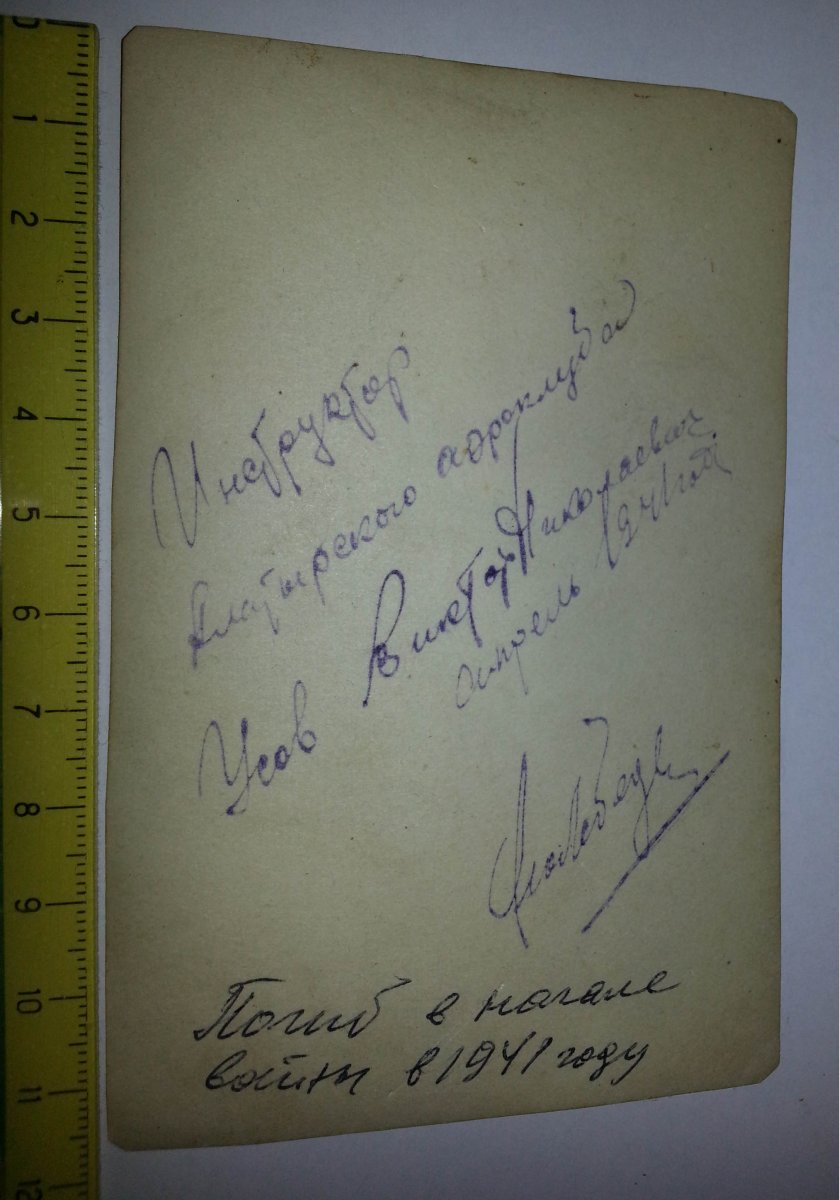 Инструктор
Алатырского аэроклуба
Усов Виктор Николаевич
апрель 1941 год
Погиб в начале
войны в 1941 году
0
1
2
3
4
5
6
7
8
9
10
11
12